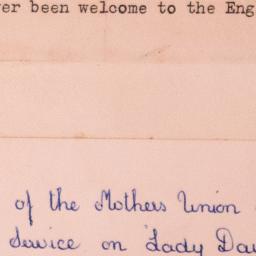 ver been welcome to the Eng
of the Mothers Union
Service on Lady Day